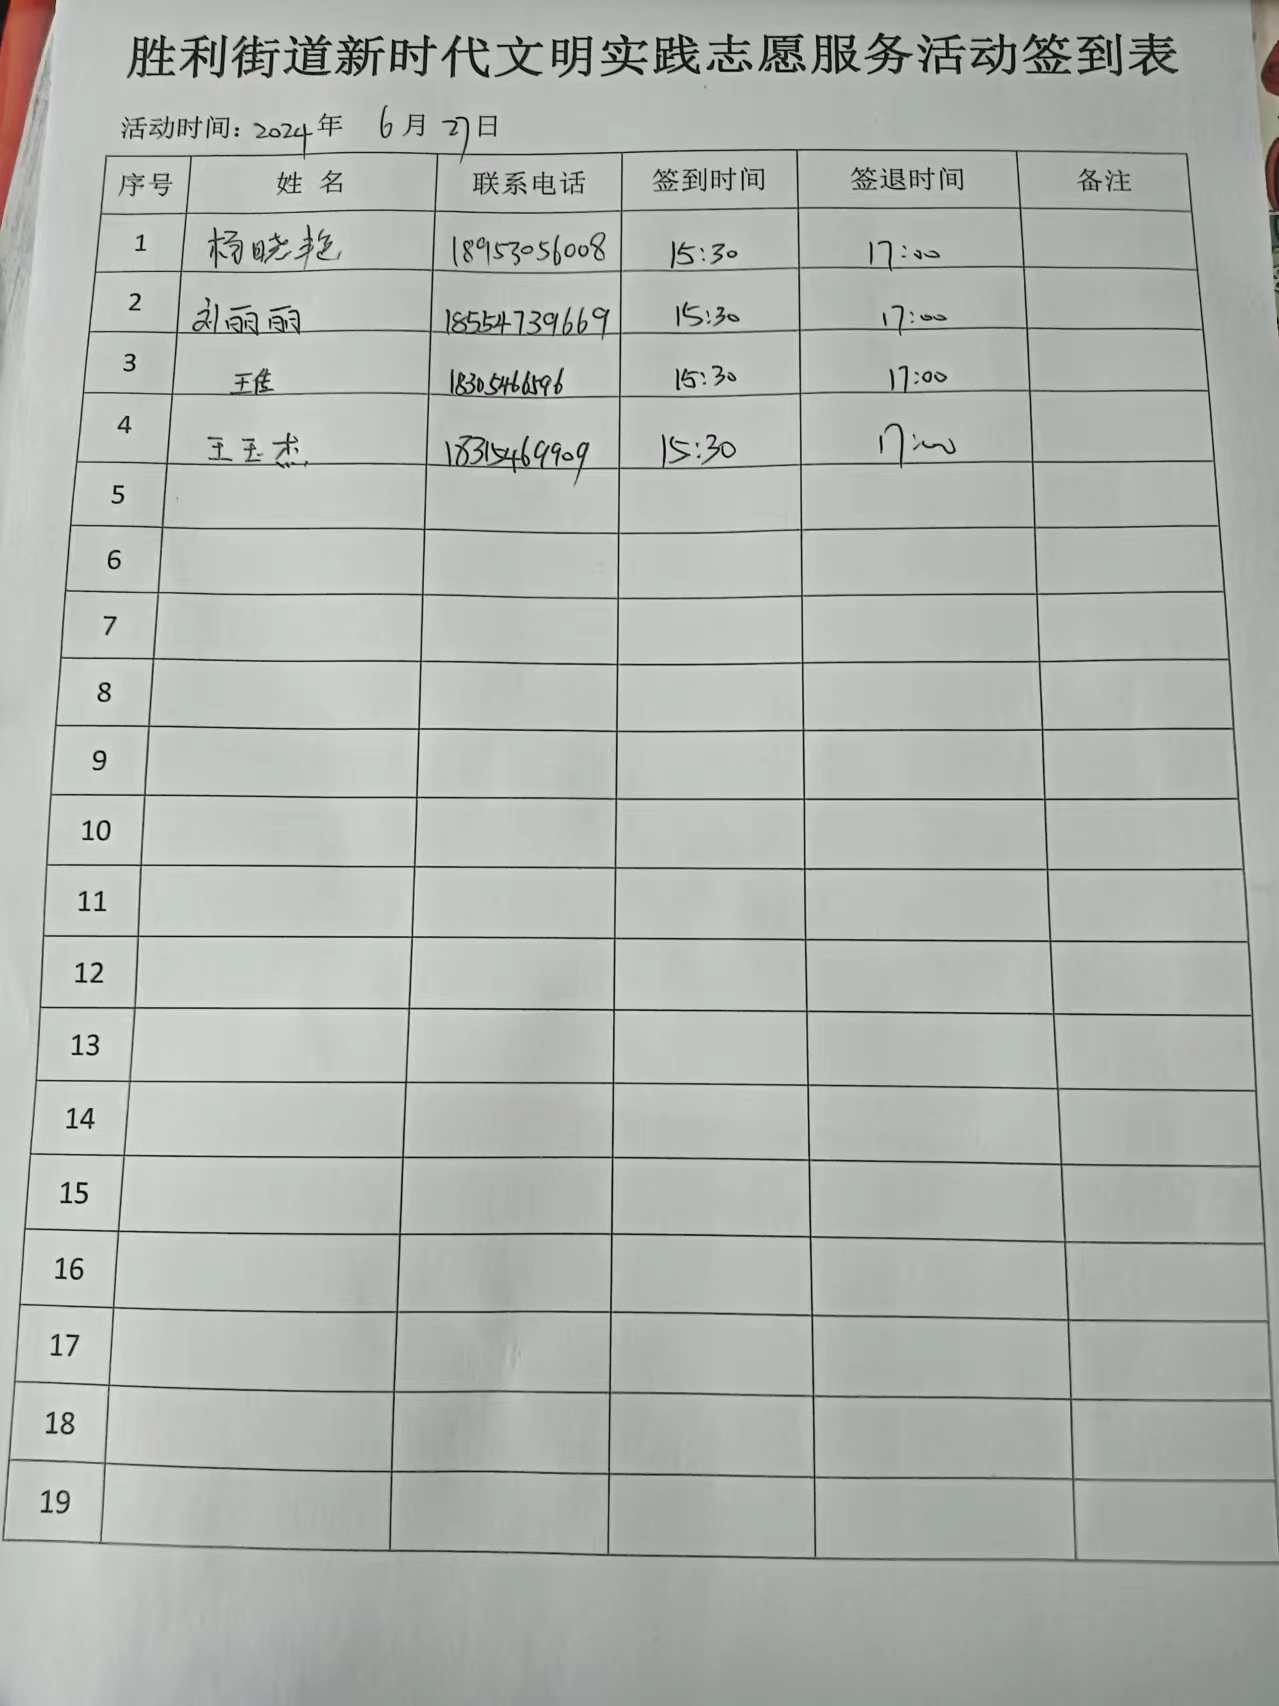 胜利街道新时代文明实践志愿服务活动签到表
活动时间：2024年 6月 27日
序号 姓 名 联系电话 签到时间 签退时间 备注
1 杨晓艳 18953056008 15:30 17:00
2 刘丽丽 18554739669 15:30 17:00
3 王佳 18305466596 15:30 17:00
4 王玉杰 18315469909 15:30 17:00
5
6
7
8
9
10
11
12
13
14
15
16
17
18
19